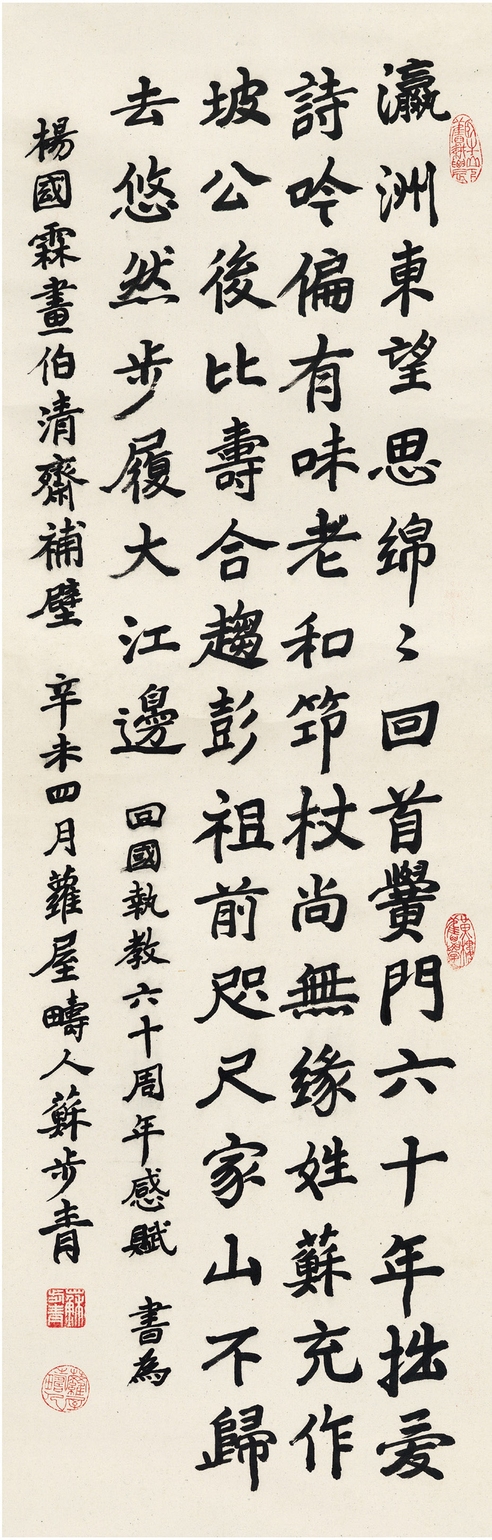 瀛洲東望思綿〻回首黌門六十年拙爱
詩吟偏有味老和筇杖尚無緣姓蘇充作
坡公後比壽合趨彭祖前咫尺家山不歸
去悠然步履大江邊 回國執教六十周年感賦 書為
楊國霖畫伯清齋補壁 辛未四月蘿屋疇人蘇步青
蘇步青